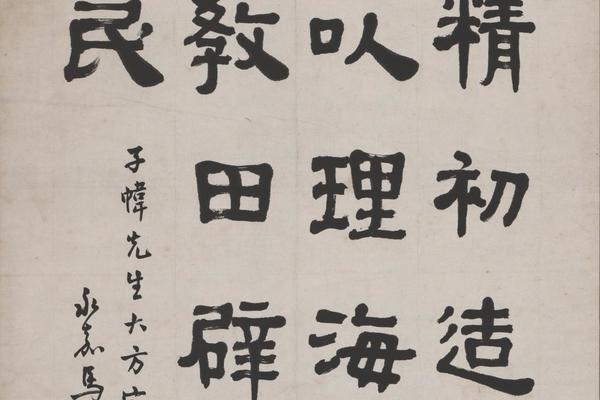 精初造
以理海
教田辟
民
子幃先生大方
永嘉馬